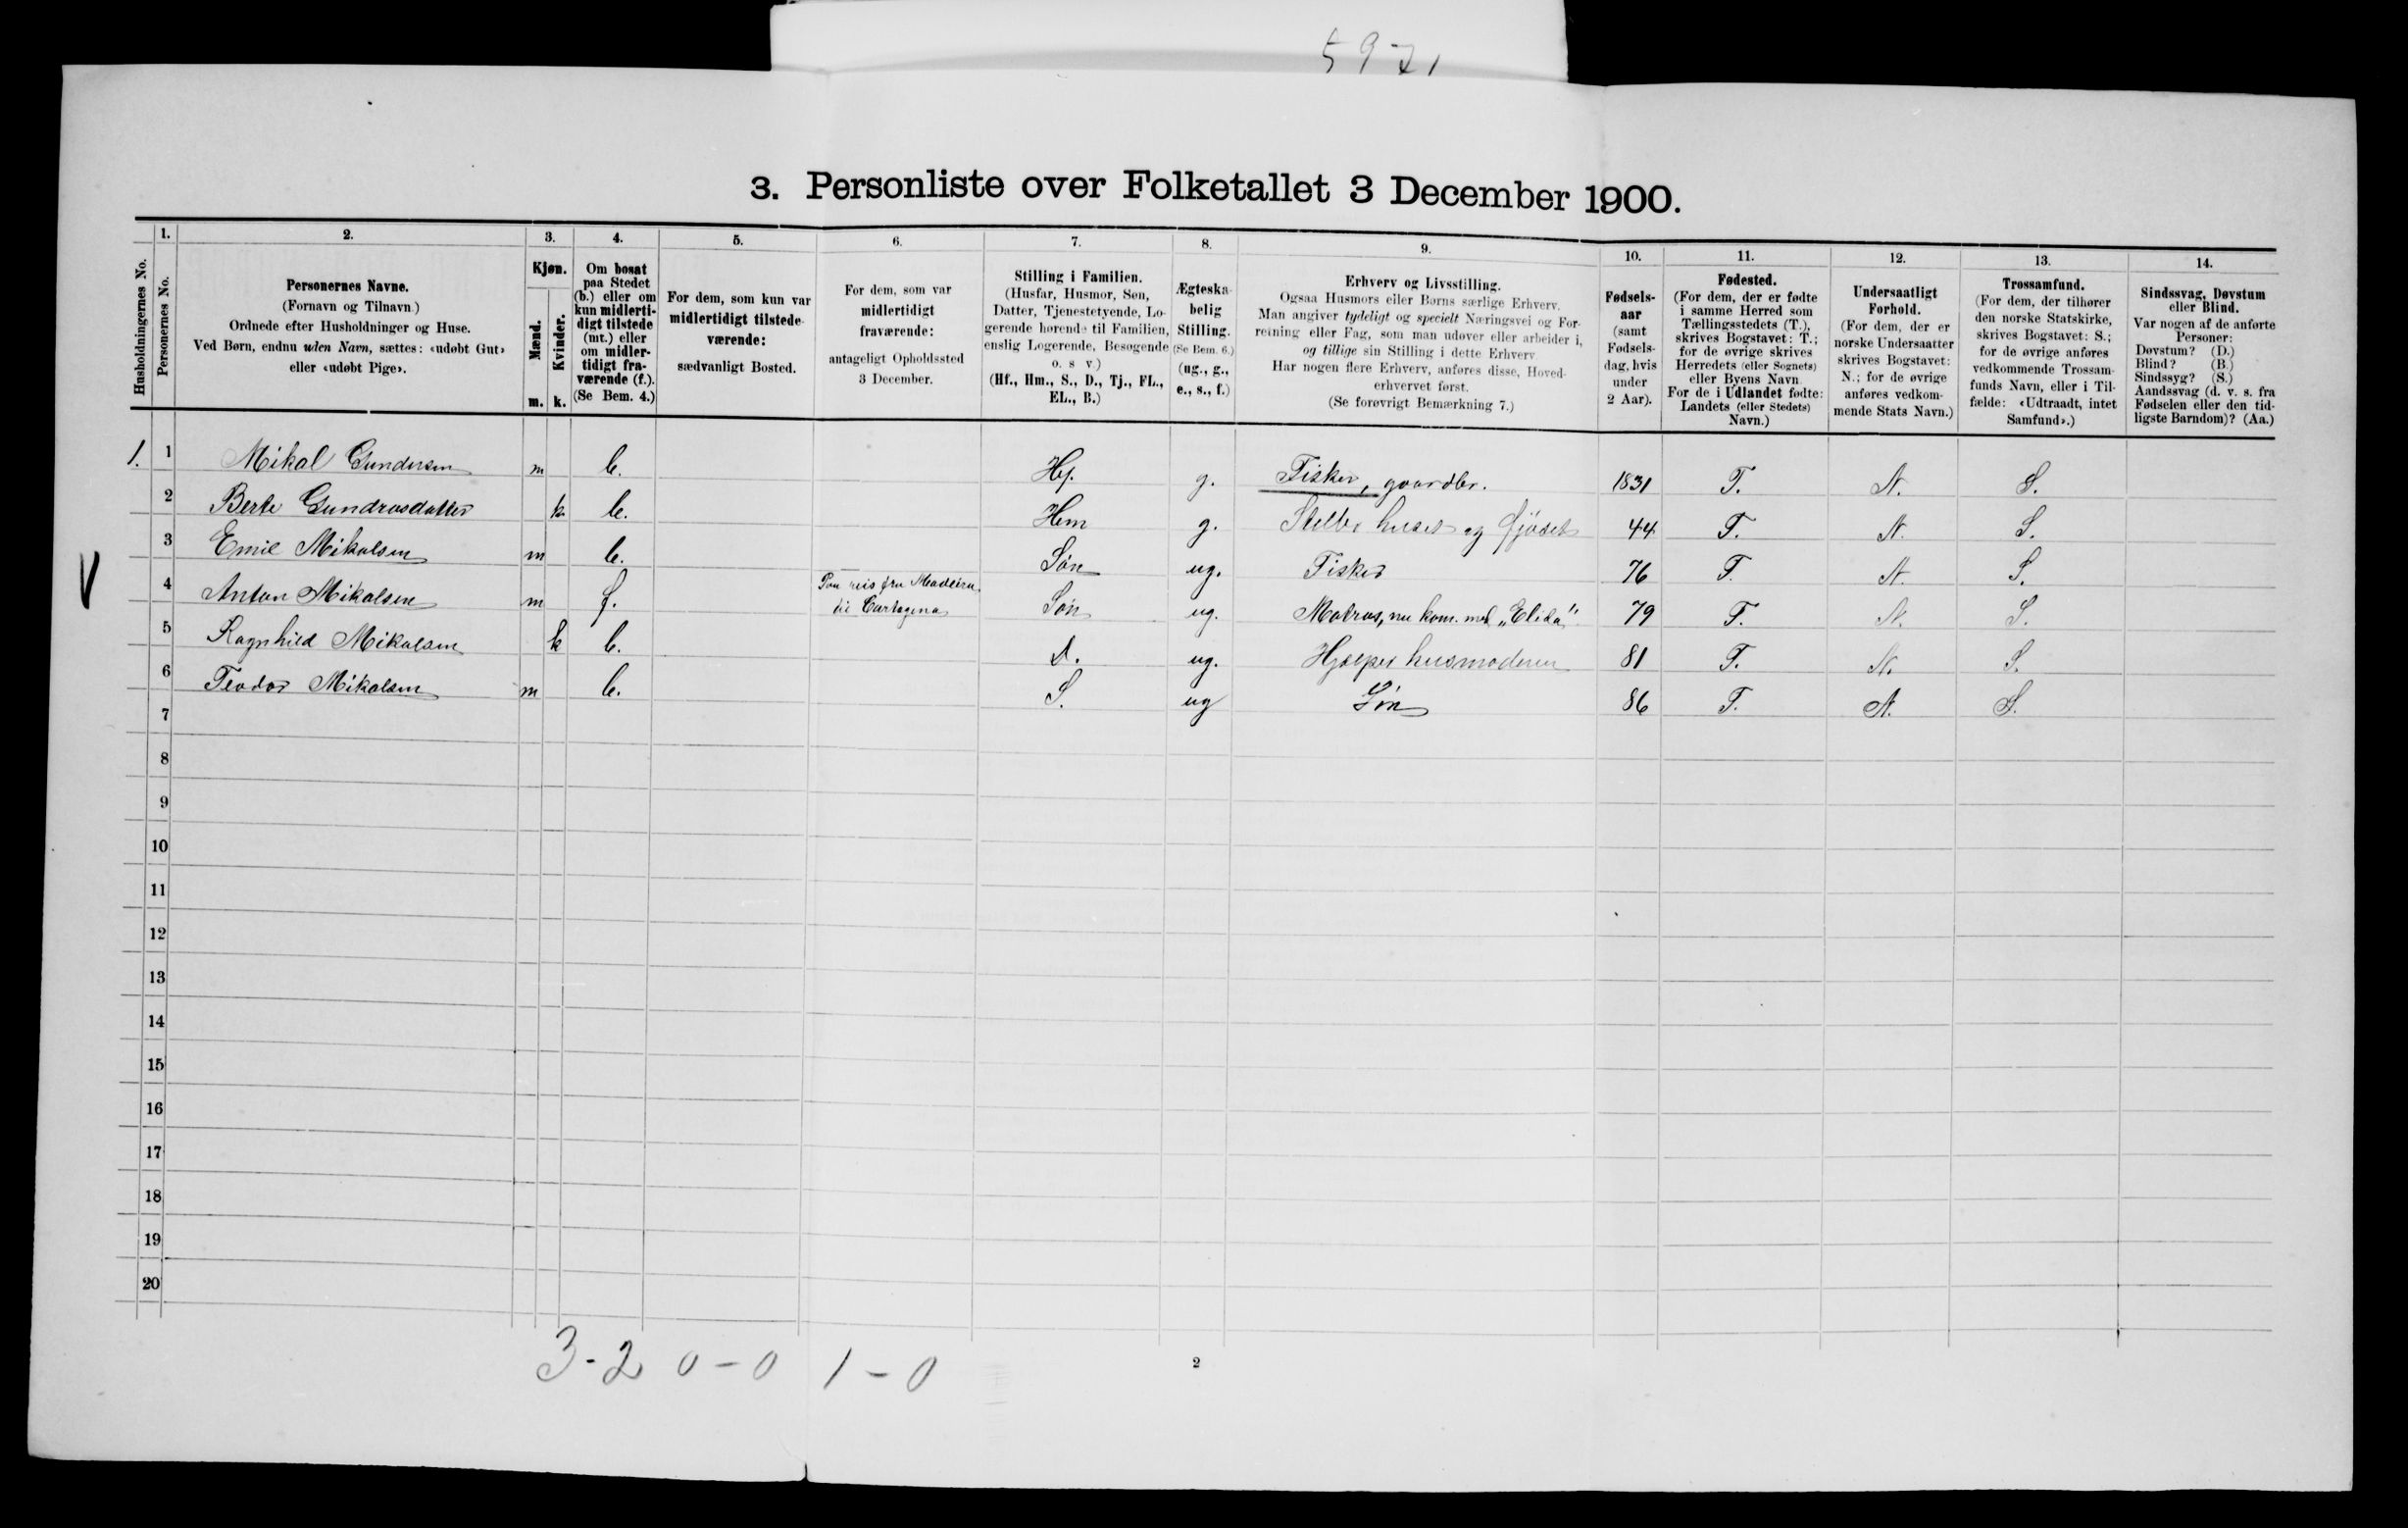 5971
3. Personliste over Folketallet 3 December 1900.
1. 2. 3. 4. 5. 6. 7. 8. 9. 10. 11. 12. 13. 14.
Husholdningernes No.
Personernes No.
Personernes Navne.
(Fornavn og Tilnavn.)
Ordnede efter Husholdninger og Huse.
Ved Børn, endnu uden Navn, sættes: «udøbt Gut»
eller «udøbt Pige».
Kjøn.
Mænd.
Kvinder.
m. k.
Om bosat
paa Stedet
(b.) eller om
kun midlerti-
digt tilstede
(mt.) eller
om midler-
tidigt fra-
værende (f.).
(Se Bem. 4.)
For dem, som kun var
midlertidigt tilstede-
værende:
sædvanligt Bosted.
For dem, som var
midlertidigt
fraværende:
antageligt Opholdssted
3 December.
Stilling i Familien.
(Husfar, Husmor, Søn,
Datter, Tjenestetyende, Lo-
gerende hørende til Familien,
enslig Logerende, Besøgende
o. s v.)
(Hf., Hm., S., D., Tj., FL.,
EL., B.)
Ægteska-
belig
Stilling.
(Se Bem. 6.)
(ug., g.,
e., s., f.)
Erhverv og Livsstilling.
Ogsaa Husmors eller Børns særlige Erhverv.
Man angiver tydeligt og specielt Næringsvei og For-
retning eller Fag, som man udøver eller arbeider i,
og tillige sin Stilling i dette Erhverv.
Har nogen flere Erhverv, anføres disse, Hoved-
erhvervet først.
(Se forøvrigt Bemærkning 7.)
Fødsels-
aar
(samt
Fødsels-
dag, hvis
under
2 Aar).
Fødested.
(For dem, der er fødte
i samme Herred som
Tællingsstedets (T.),
skrives Bogstavet: T.;
for de øvrige skrives
Herredets (eller Sognets)
eller Byens Navn.
For de i Udlandet fødte:
Landets (eller Stedets)
Navn.)
Undersaatligt
Forhold.
(For dem, der er
norske Undersaatter
skrives Bogstavet:
N.; for de øvrige
anføres vedkom-
mende Stats Navn.)
Trossamfund.
(For dem, der tilhører
den norske Statskirke,
skrives Bogstavet: S.;
for de øvrige anføres
vedkommende Trossam-
funds Navn, eller i Til-
fælde: «Udtraadt, intet
Samfund».)
Sindssvag, Døvstum
eller Blind.
Var nogen af de anførte
Personer:
Døvstum? (D.)
Blind? (B.)
Sindssyg? (S.)
Aandssvag (d. v. s. fra
Fødselen eller den tid-
ligste Barndom)? (Aa.)
1. 1 Mikal Gundersen m b. Hf. g. Fisker, gaardbr. 1831 T. N. S.
2 Berte Gundrosdatter k b. Hm g. Steller huset og fjöset 44 T. N. S.
3 Emil Mikalsen m b. Sön ug. Fisker 76 T. N. S.
4 Anton Mikalsen m f. Paa reis fra Madeira til Cartagena Sön ug. Matros, nu kom. med „Elida“ 79 T. N. S.
5 Ragnhild Mikalsen k b. D. ug. Hjælper husmoderen 81 T. N. S.
6 Teodor Mikalsen m b. S. ug Sön 86 T. N. S.
7
8
9
10
11
12
13
14
15
16
17
18
19
20
3-2 0-0 1-0
2